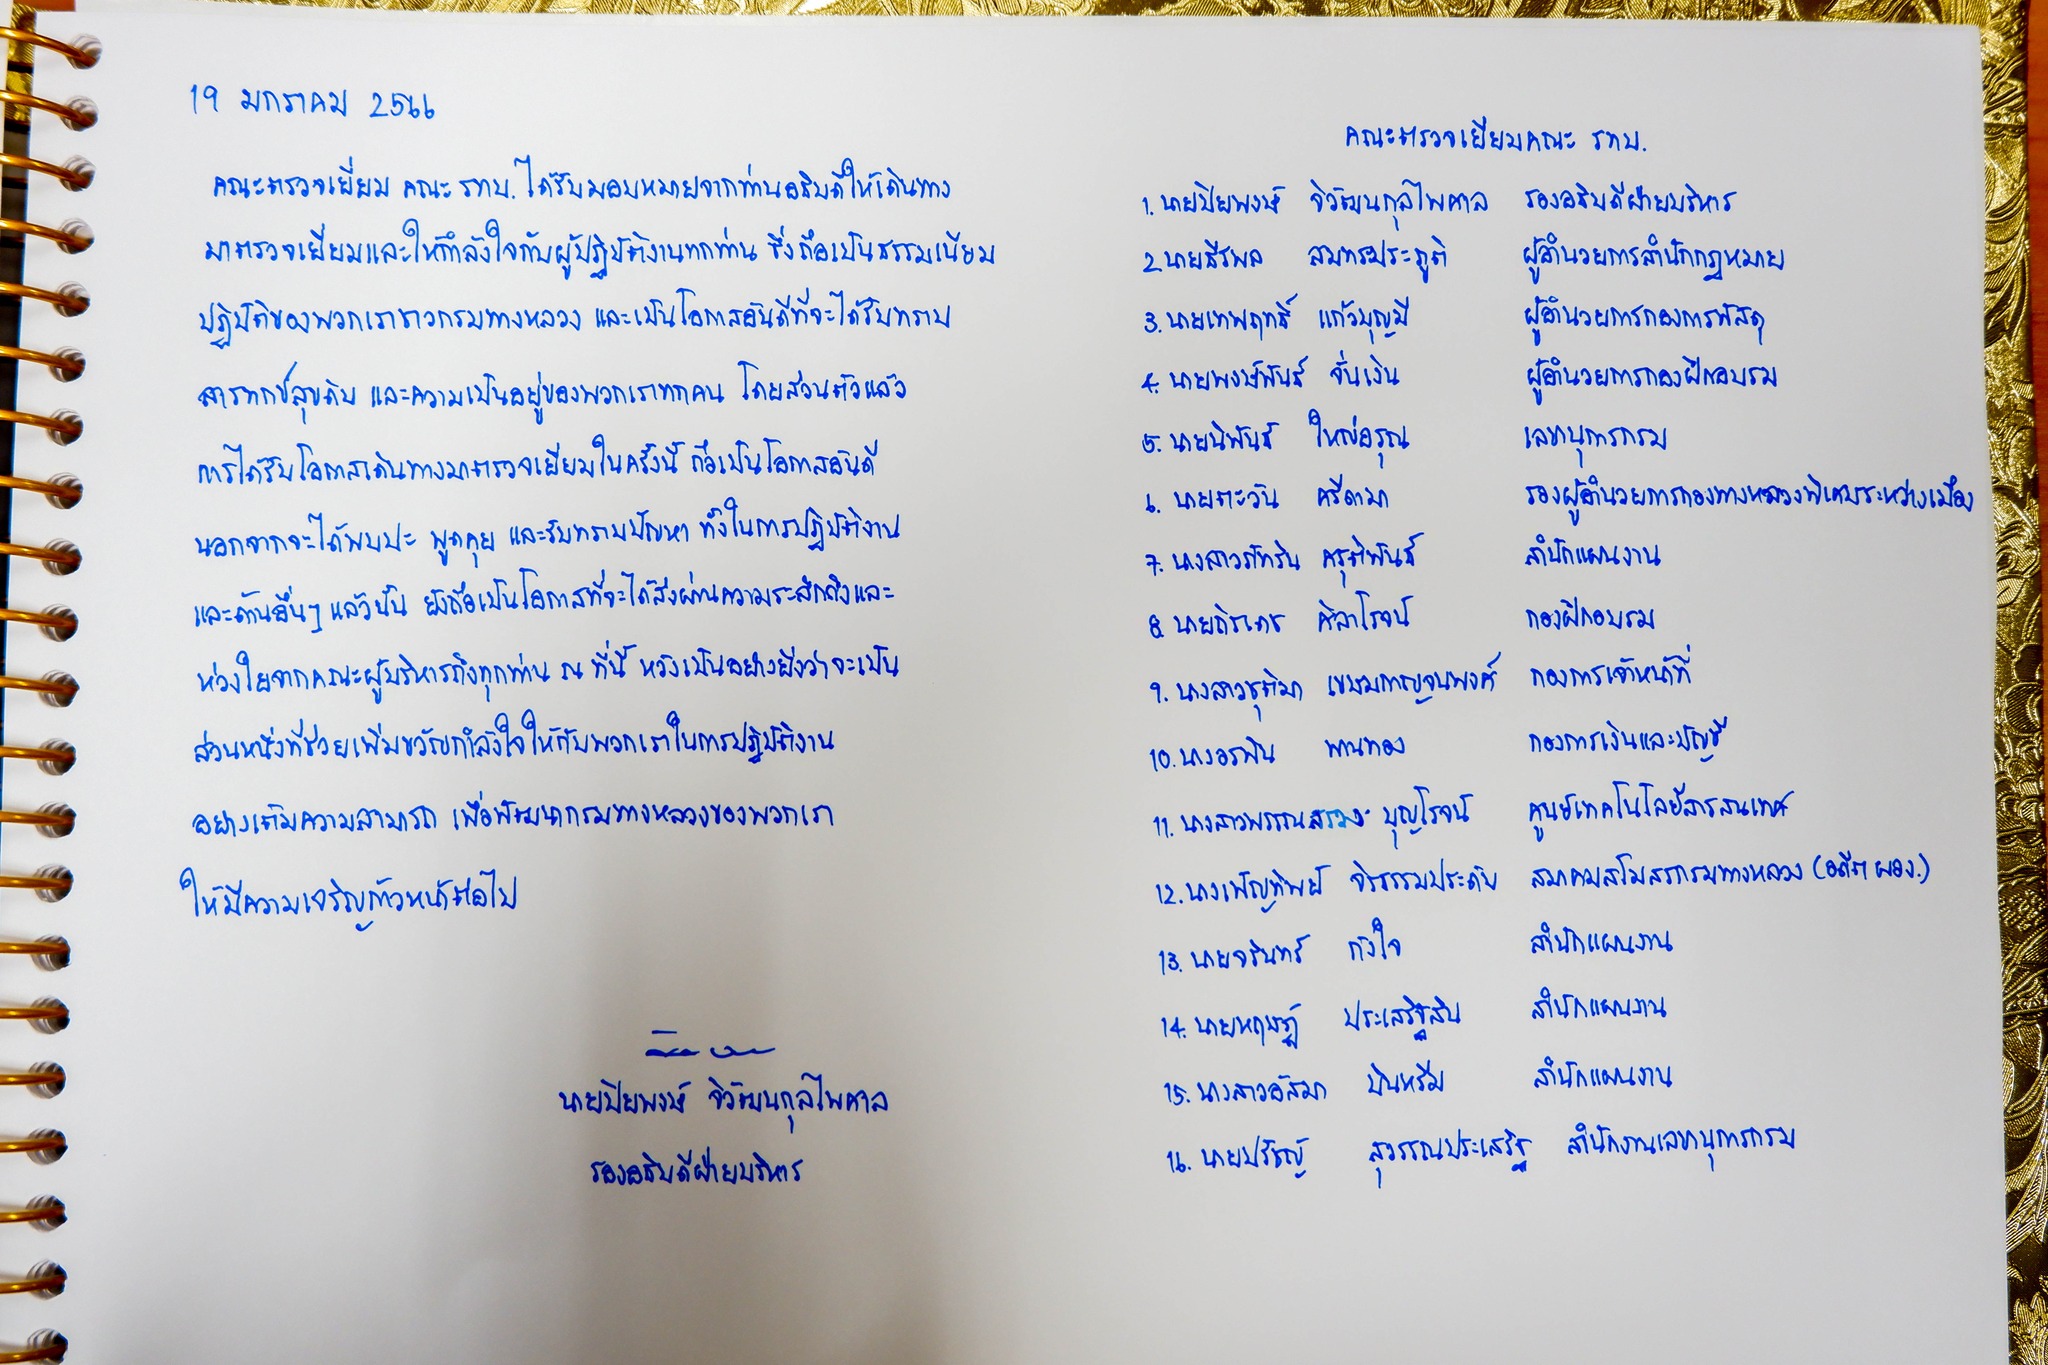 19 มกราคม 2566
คณะตรวจเยี่ยม คณะ รทบ. ได้รับมอบหมายจากท่านอธิบดีให้เดินทาง
มาตรวจเยี่ยมและให้กำลังใจกับผู้ปฏิบัติงานทุกท่าน ซึ่งถือเป็นธรรมเนียม
ปฏิบัติของพวกเราชาวกรมทางหลวง และเป็นโอกาสอันดีที่จะได้รับทราบ
สารทุกข์สุขดิบ และความเป็นอยู่ของพวกเราทุกคน โดยส่วนตัวแล้ว
การได้รับโอกาสเดินทางมาตรวจเยี่ยมในครั้งนี้ ถือเป็นโอกาสอันดี
นอกจากจะได้พบปะ พูดคุย และรับทราบปัญหา ทั้งในการปฏิบัติงาน
และด้านอื่นๆ แล้วนั้น ยังถือเป็นโอกาสที่จะได้ส่งผ่านความระลึกถึงและ
ห่วงใยจากคณะผู้บริหารถึงทุกท่าน ณ ที่นี้ หวังเป็นอย่างยิ่งว่าจะเป็น
ส่วนหนึ่งที่ช่วยเพิ่มขวัญกำลังใจให้กับพวกเราในการปฏิบัติงาน
อย่างเต็มความสามารถ เพื่อพัฒนากรมทางหลวงของพวกเรา
ให้มีความเจริญก้าวหน้าต่อไป
นายปิยพงษ์ จิวัฒนกุลไพศาล
รองอธิบดีฝ่ายบริหาร
คณะตรวจเยี่ยมคณะ รทบ.
1. นายปิยพงษ์ จิวัฒนกุลไพศาล รองอธิบดีฝ่ายบริหาร
2. นายธีรพล สมุทรประภูติ ผู้อำนวยการสำนักกฎหมาย
3. นายเทพฤทธิ์ แก้วบุญมี ผู้อำนวยการกองการพัสดุ
4. นายพงษ์พันธ์ จั่นเงิน ผู้อำนวยการกองฝึกอบรม
5. นายนิพันธ์ ใหญ่อรุณ เลขานุการกรม
6. นายตะวัน ศรีดามา รองผู้อำนวยการกองทางหลวงพิเศษระหว่างเมือง
7. นางสาวภัทริน ศรุติพันธ์ สำนักแผนงาน
8. นายถิรเดช ศิลาโรจน์ กองฝึกอบรม
9. นางสาวชุติมา เขมกาญจนพงศ์ กองการเจ้าหน้าที่
10. นางอรพิน พานทอง กองการเงินและบัญชี
11. นางสาวพรรณสรวง บุญโรจน์ ศูนย์เทคโนโลยีสารสนเทศ
12. นางเพ็ญทิพย์ จิรธรรมประดับ สมาคมสโมสรกรมทางหลวง (อดีต ผอง.)
13. นายจรินทร์ กังใจ สำนักแผนงาน
14. นายหฤษฎ์ ประเสริฐสิน สำนักแผนงาน
15. นางสาวอัสมา บินหรีม สำนักแผนงาน
16. นายปรัชญ์ สุวรรณประเสริฐ สำนักงานเลขานุการกรม